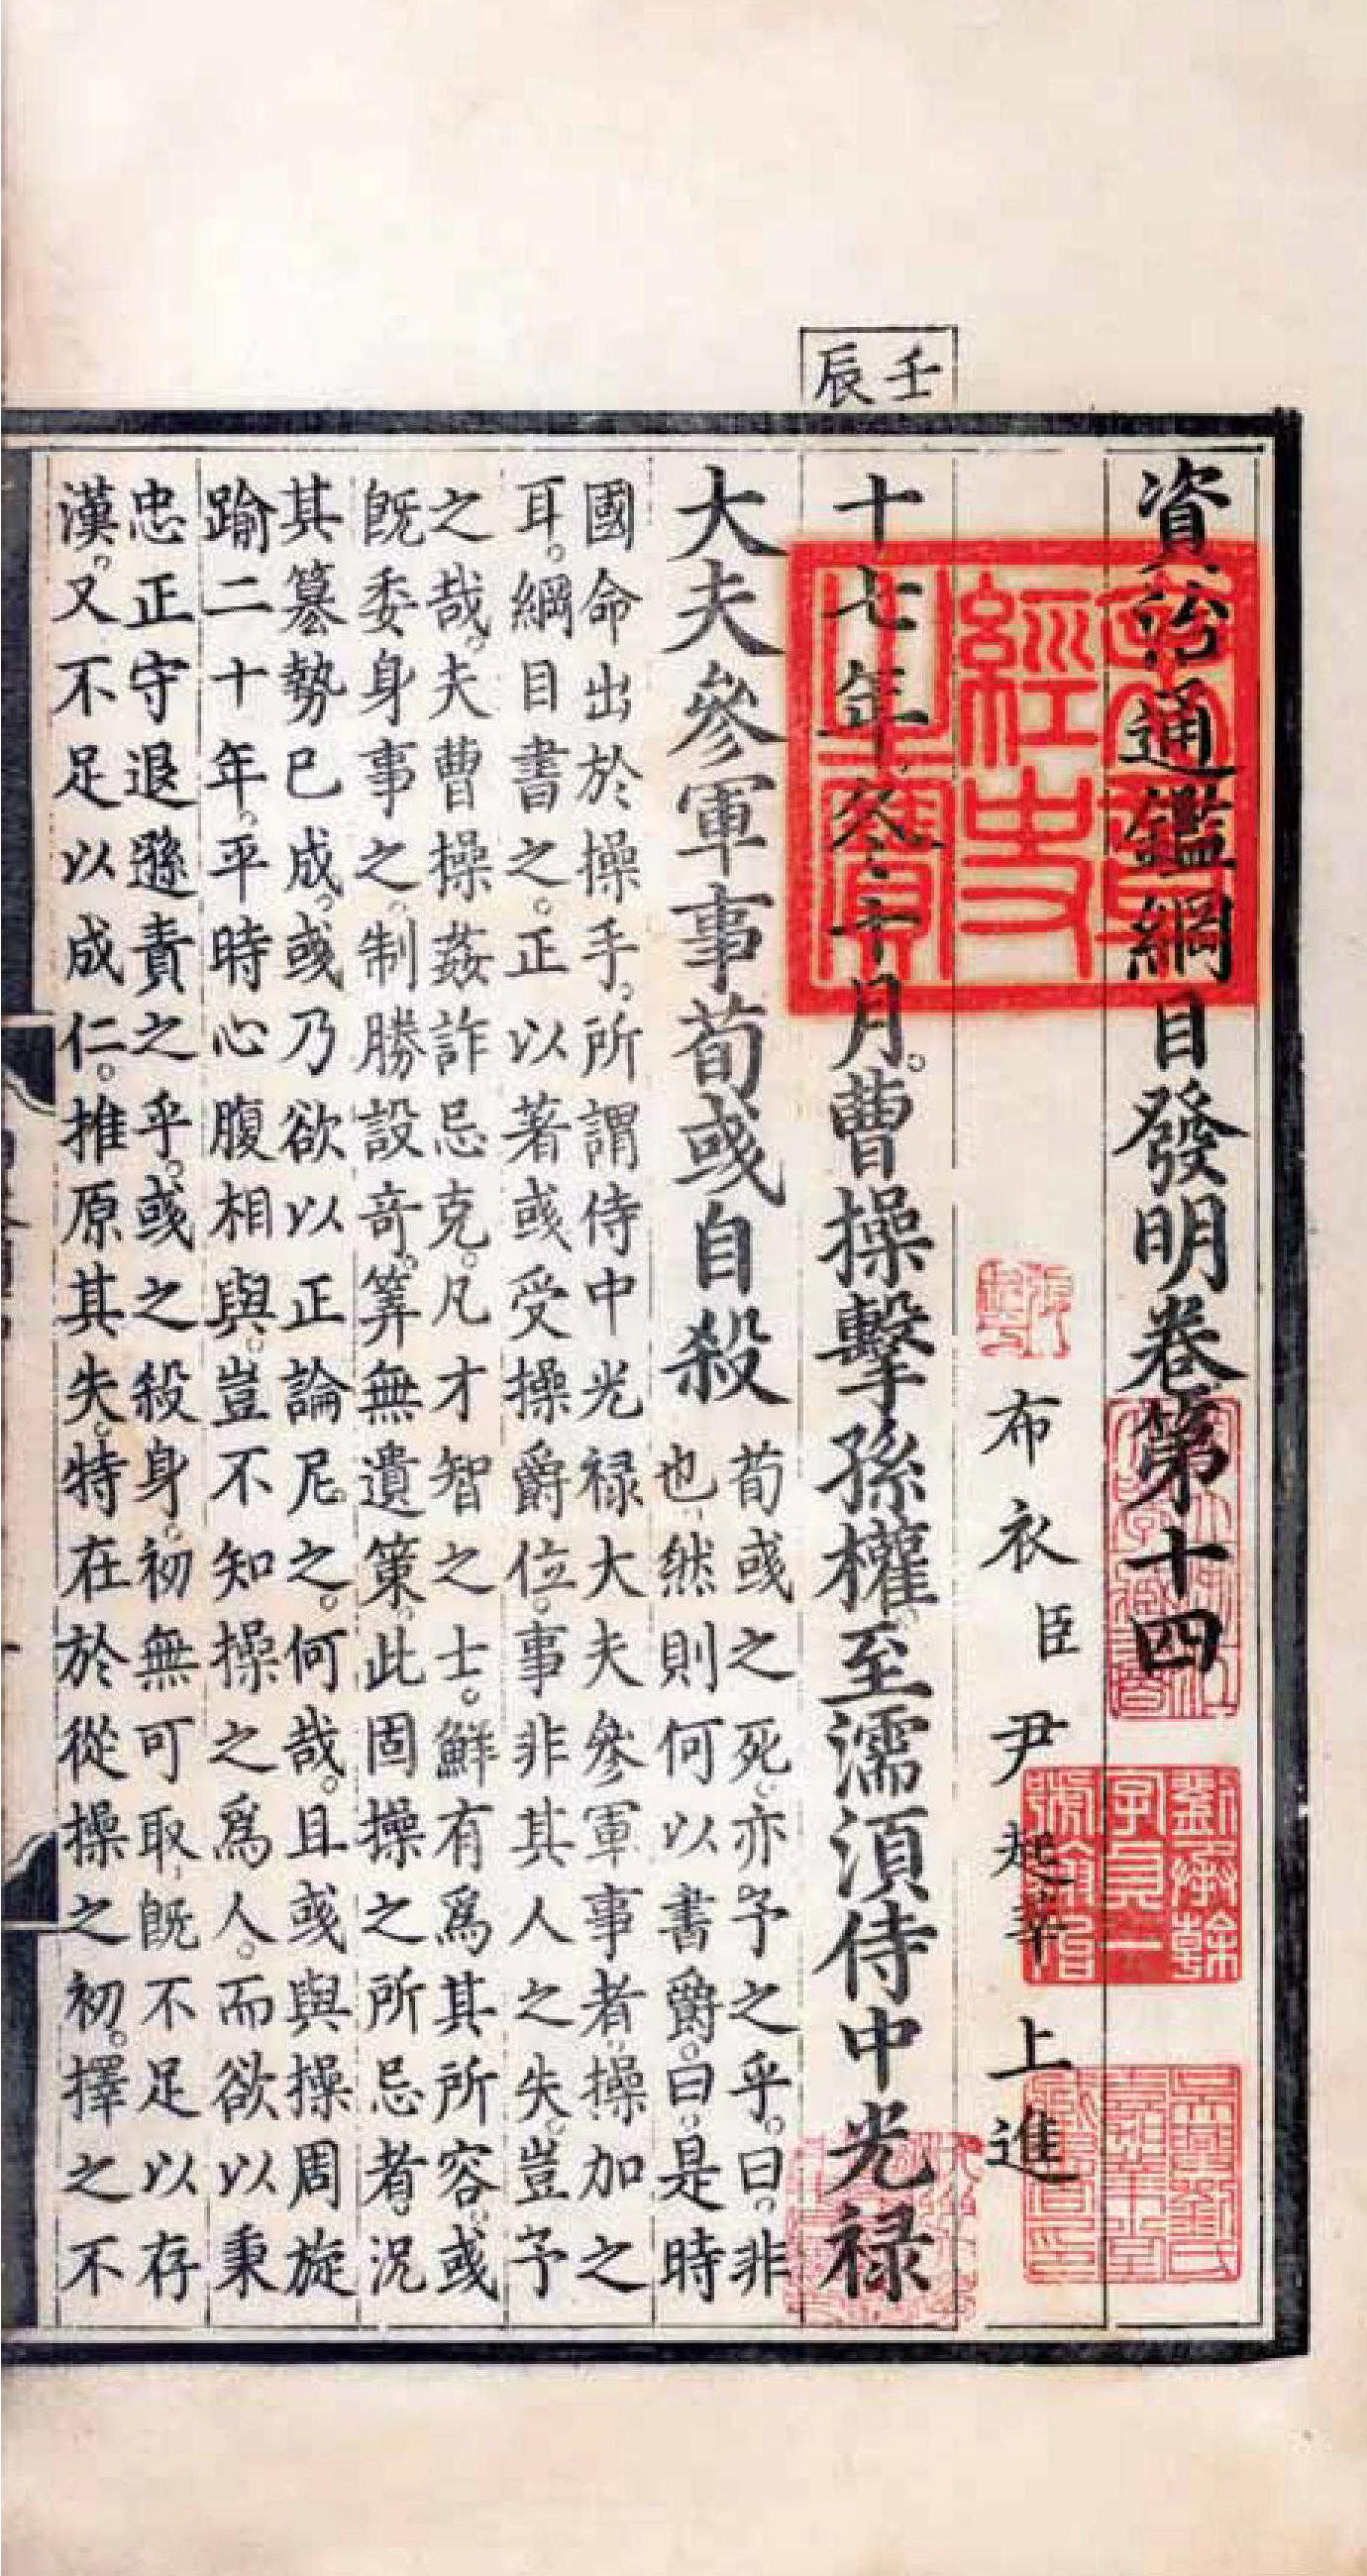 資治通鑑綱目發明卷第十四
布衣臣尹起莘上進
壬辰
十七年冬十月。曹操擊孫權至濡須侍中光禄
大夫參軍事荀彧自殺
荀彧之死。亦予之乎。曰。非
也。然則何以書爵。曰。是時
國命出於操手。所謂侍中光禄大夫參軍事者。操加之
耳。綱目書之。正以著彧受操爵位。事非其人之失。豈予
之哉。夫曹操姦詐忌克。凡才智之士。鮮有爲其所容。彧
旣委身事之。制勝設奇。筭無遺策。此固操之所忌者。況
其簒勢已成。彧乃欲以正論尼之。何哉。且彧與操周旋
踰二十年。平時心腹相與。豈不知操之爲人。而欲以秉
忠正守退遜責之乎。彧之殺身。初無可取。旣不足以存
漢。又不足以成仁。推原其失。特在於從操之初。擇之不
經史
劉承幹
字貞一
號翰怡